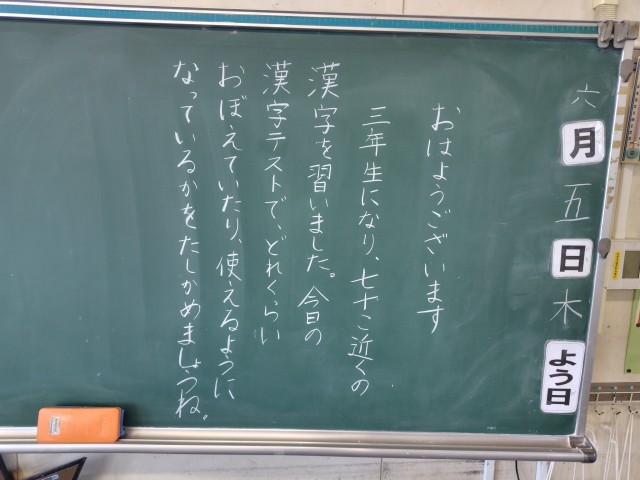 六月五日木よう日
おはようございます
三年生になり、七十こ近くの
漢字を習いました。今日の
漢字テストで、どれくらい
おぼえていたり、使えるように
なっているかをたしかめましょうね。